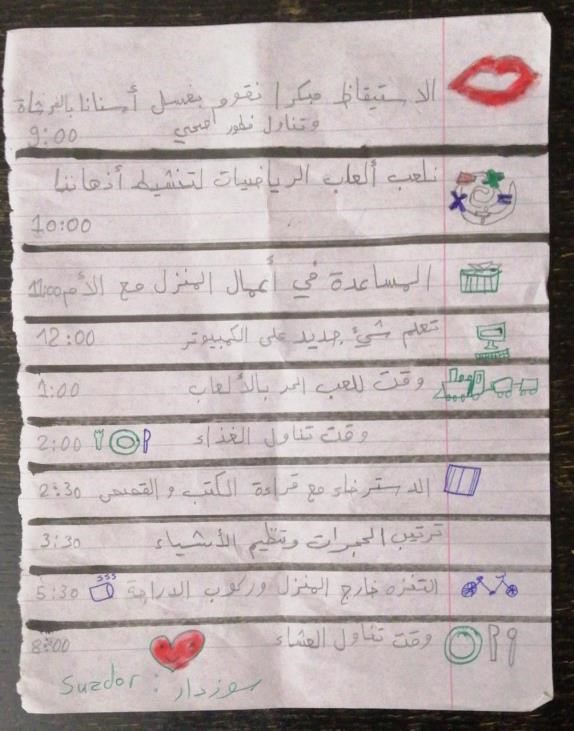 الاستيقاظ مبكرا نقوم بغسل أسناننا بالفرشاة
وتناول فطور صحي
9:00
نلعب ألعاب الرياضيات لتنشيط أذهاننا
10:00
المساعدة في أعمال المنزل مع الأم 11:00
تعلم شيئ جديد على الكمبيوتر 12:00
وقت للعب الحر بالألعاب 1:00
وقت تناول الغذاء 2:00
الاسترخاء مع قراءة الكتب و القصص 2:30
ترتيب الحجرات وتنظيم الأشياء 3:30
التنزه خارج المنزل وركوب الدراجة 5:30
وقت تناول العشاء 8:00
Suzdar : سوزدار